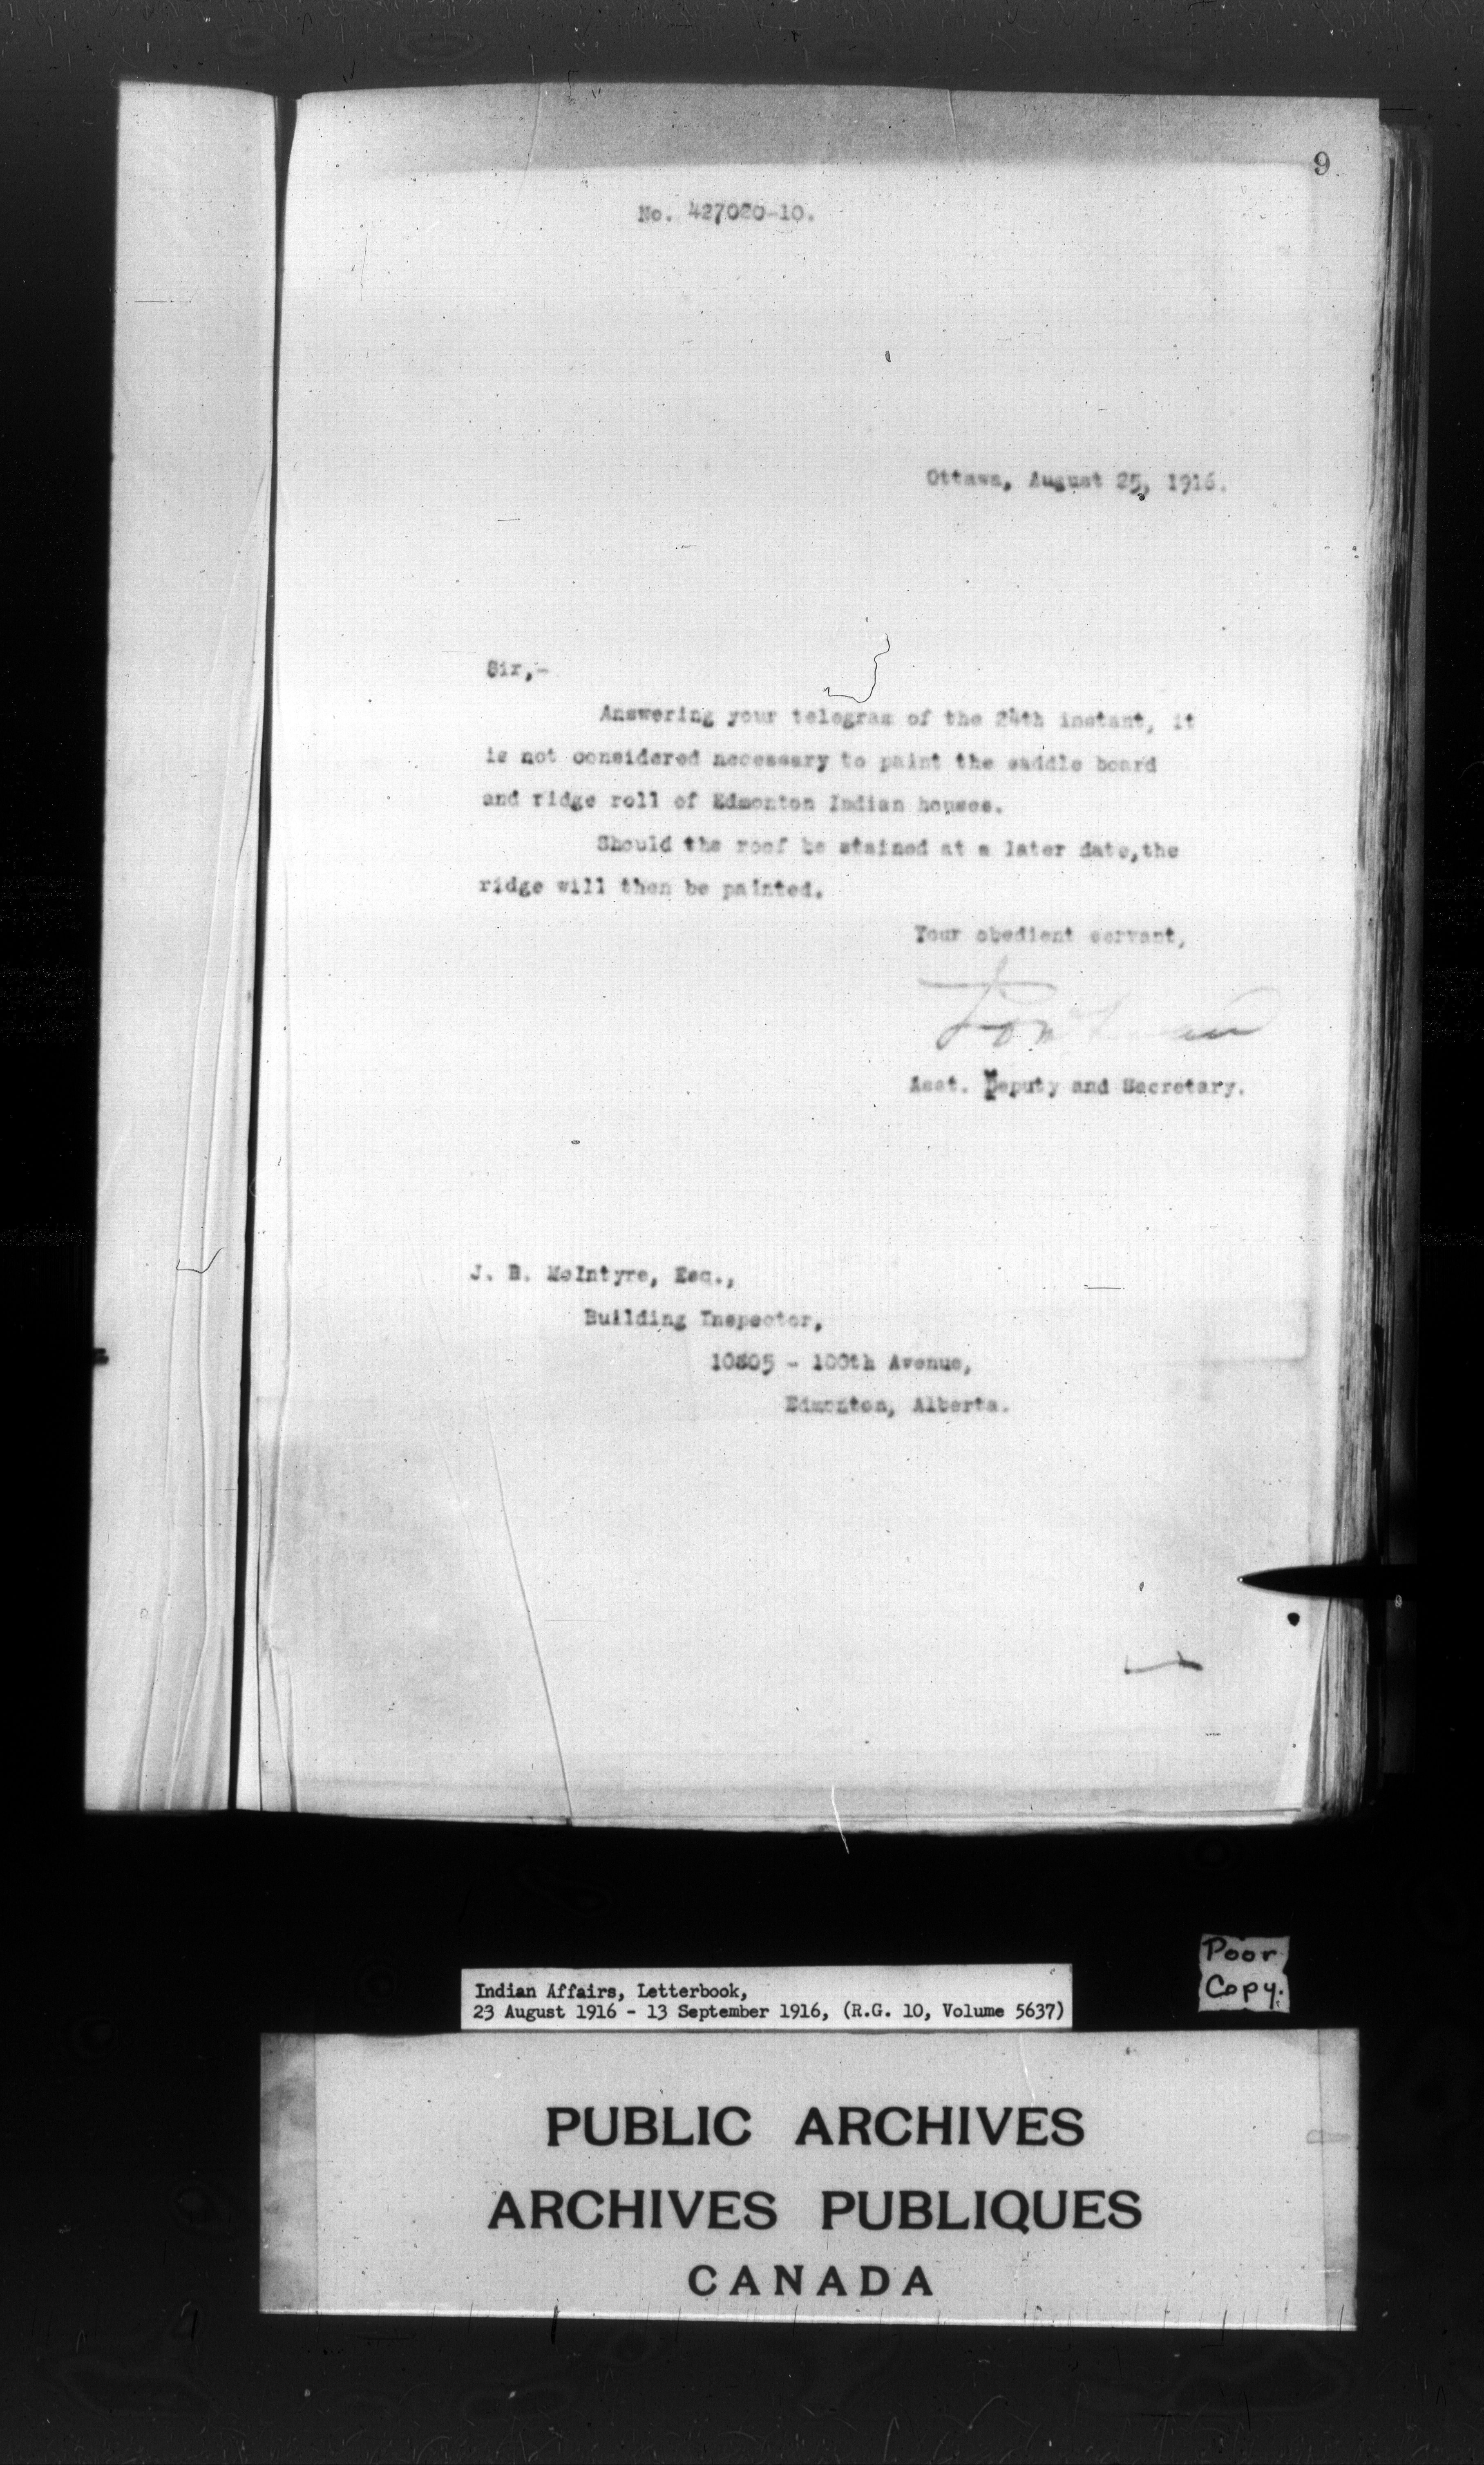 9
No. 427020-10.
Ottawa, August 25, 1916.
Sir,-
Answering your telegram of the 24th instant, it
is not considered necessary to paint the saddle board
and ridge roll of Edmonton Indian houses.
Should the roof be stained at a later date,the
ridge will then be painted.
Your obedient servant,
Asst. Deputy and Secretary.
J. B. McIntyre, Esq.,
Building Inspector,
10805 - 100th Avenue,
Edmonton, Alberta.
Poor
Copy.
Indian Affairs, Letterbook,
23 August 1916 - 13 September 1916, (R.G. 10, Volume 5637)
PUBLIC ARCHIVES
ARCHIVES PUBLIQUES
CANADA